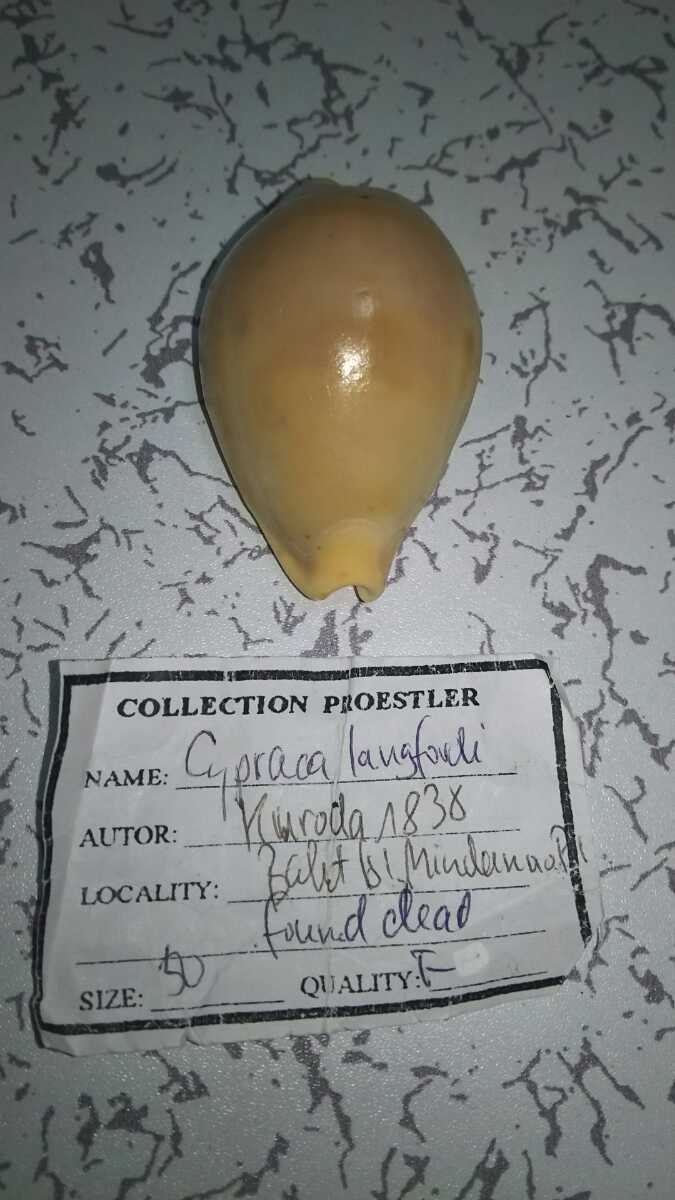 COLLECTION PROESTLER
NAME: Cypraea langfordi
AUTOR: Kuroda 1838
LOCALITY: Balut Isl, Mindanao Ph
found dead
SIZE: 50 QUALITY: F-